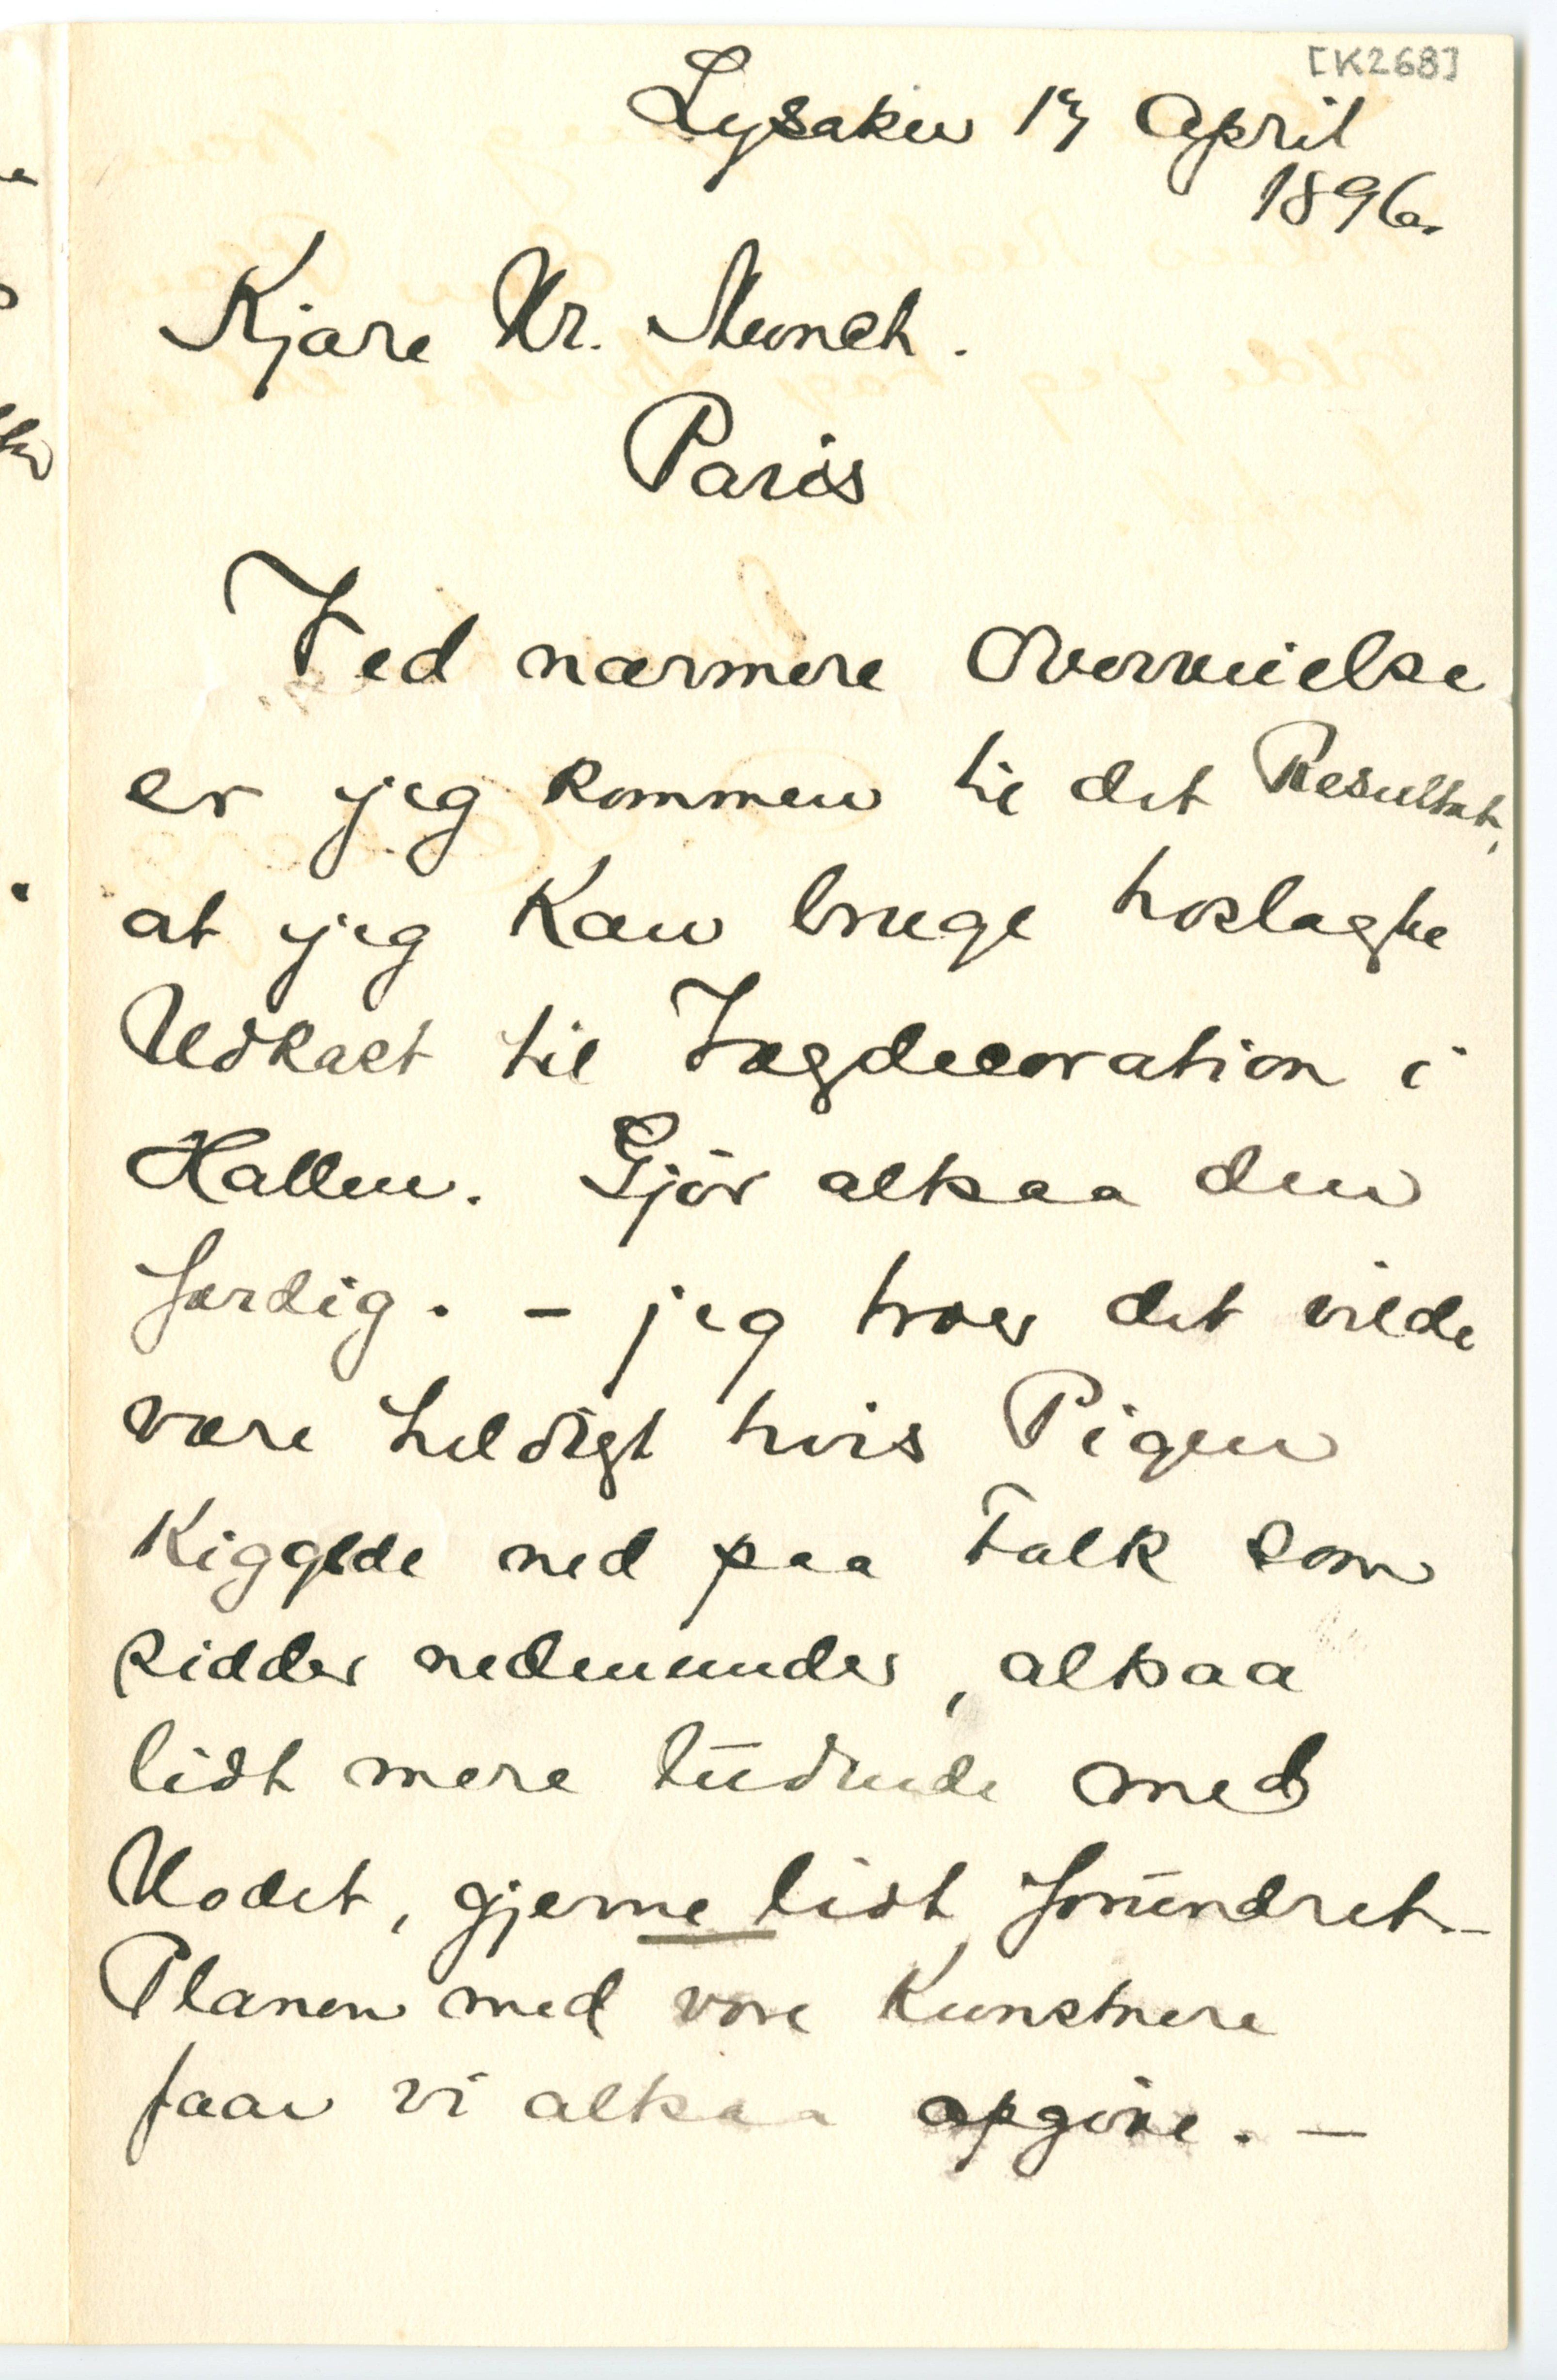 [K268]
Lysaker 17 April
1896.
Kjære Hr. Munch.
Paris
Ved nærmere Overveielse
er jeg kommen til det Resultat,
at jeg Kan bruge hoslagte
Udkast til Vægdecoration i
Hallen. Gjör altsaa den
færdig. – jeg troer det vilde
være heldigt hvis Pigen
Kiggede ned paa Folk som
sidder nedenunder, altsaa
lidt mere ludende med
Hodet, gjerne lidt forundret –
Planen med vore Kunstnere
faar vi altsaa opgive. –